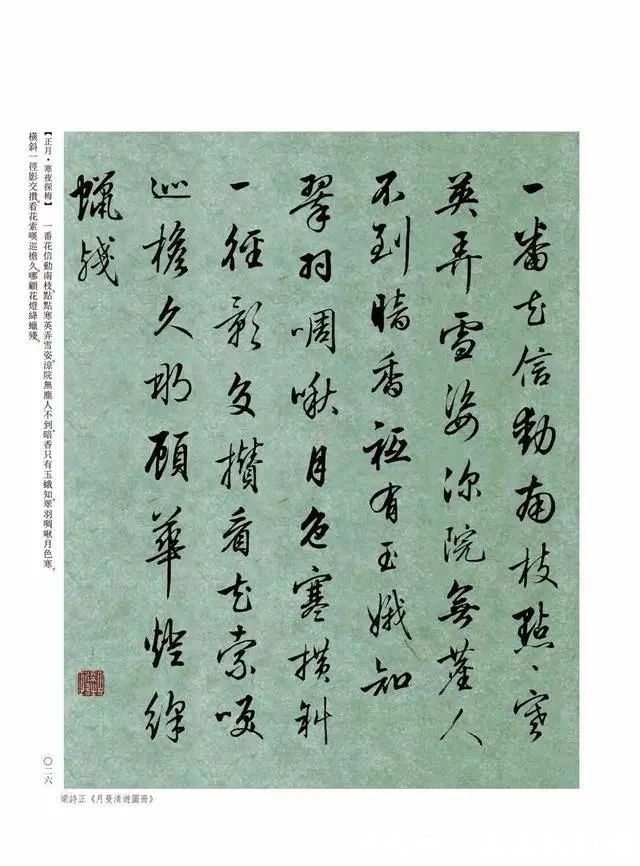 一番花信動南枝點、寒
英弄雪姿涼院無塵人
不到暗香祗有玉娥知
翠羽啁啾月色寒橫斜
一徑影交攢看花索咲
巡檐久那顧華燈絳
蠟殘
【正月·寒夜探梅】 一番花信動南枝。點點寒英弄雪姿。涼院無塵人不到。暗香只有玉蛾知。翠羽啁啾月色寒。
橫斜一徑影交攢。看花索嘆巡檐久。哪顧花燈絳蠟殘。
〇二六
梁詩正《月曼清遊圖冊》